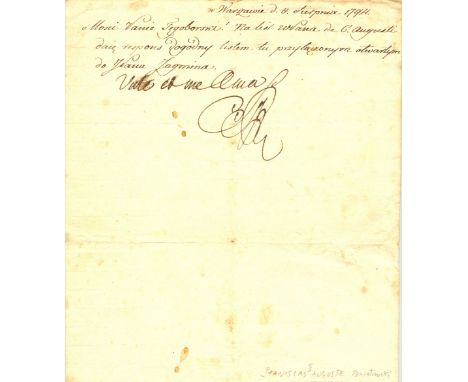 w Warszawie d. 8. Sierpnia 1794.
Mości Panie Tęgoborski! Na list WPana de 6. Augusti
daię respons dogodny listem tu przyłączonym otwartym
do JPana Jagmina.
Vale et me Ama
SAR
STANISLAS II AUGUSTE Poniatowski